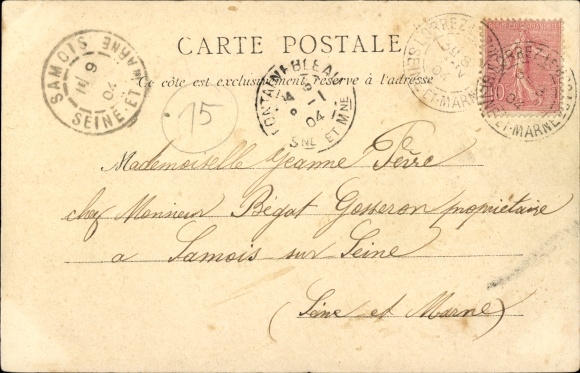 CARTE POSTALE
Ce côté est exclusivement réservé à l'adresse
SAMOIS
9
04
SEINE ET MARNE
FONTAINEBLEAU
9-1
04
SNE ET MNE
ET-MARNE
10
ET-MARNE
15
Mademoiselle Jeanne Fèvre
chez Monsieur Bégat Gosseron propriétaire
a Samois sur Seine
(Seine et Marne)